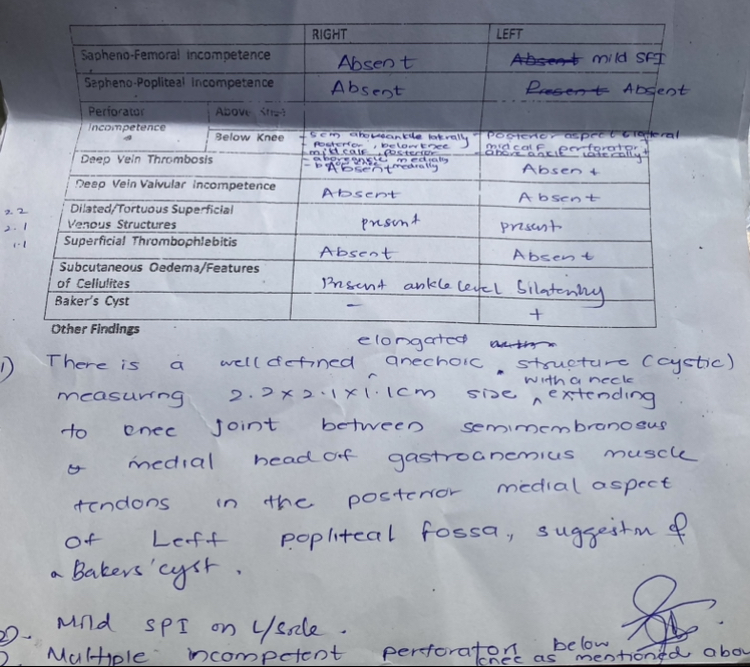 RIGHT LEFT
Sapheno-Femoral Incompetence Absent Absent mild SFI
Sapheno-Popliteal Incompetence Absent Present Absent
Perforator Incompetence Above Knee
Below Knee
- 5cm above ankle laterally
- Posterior, below knee
- mid calf, posterior
- above ankle medially
medially
- Posterior aspect bilateral
mid calf perforator
above ankle laterally
Deep Vein Thrombosis Absent Absent
Deep Vein Valvular Incompetence Absent Absent
2.2
2.1
1.1
Dilated/Tortuous Superficial
Venous Structures present present
Superficial Thrombophlebitis Absent Absent
Subcutaneous Oedema/Features
of Cellulites Present ankle level bilaterally
Baker's Cyst - +
Other Findings
elongated
1) There is a well defined anechoic structure (cystic)
with a neck
measuring 2.2 x 2.1 x 1.1cm size extending
to knee joint between semimembronosus
& medial head of gastrocnemius muscle
tendons in the posterior medial aspect
of Left popliteal fossa, suggestn of
a Bakers' cyst.
2). Mild SPI on L/side.
Multiple incompetent perforators below
knee as mentioned abov